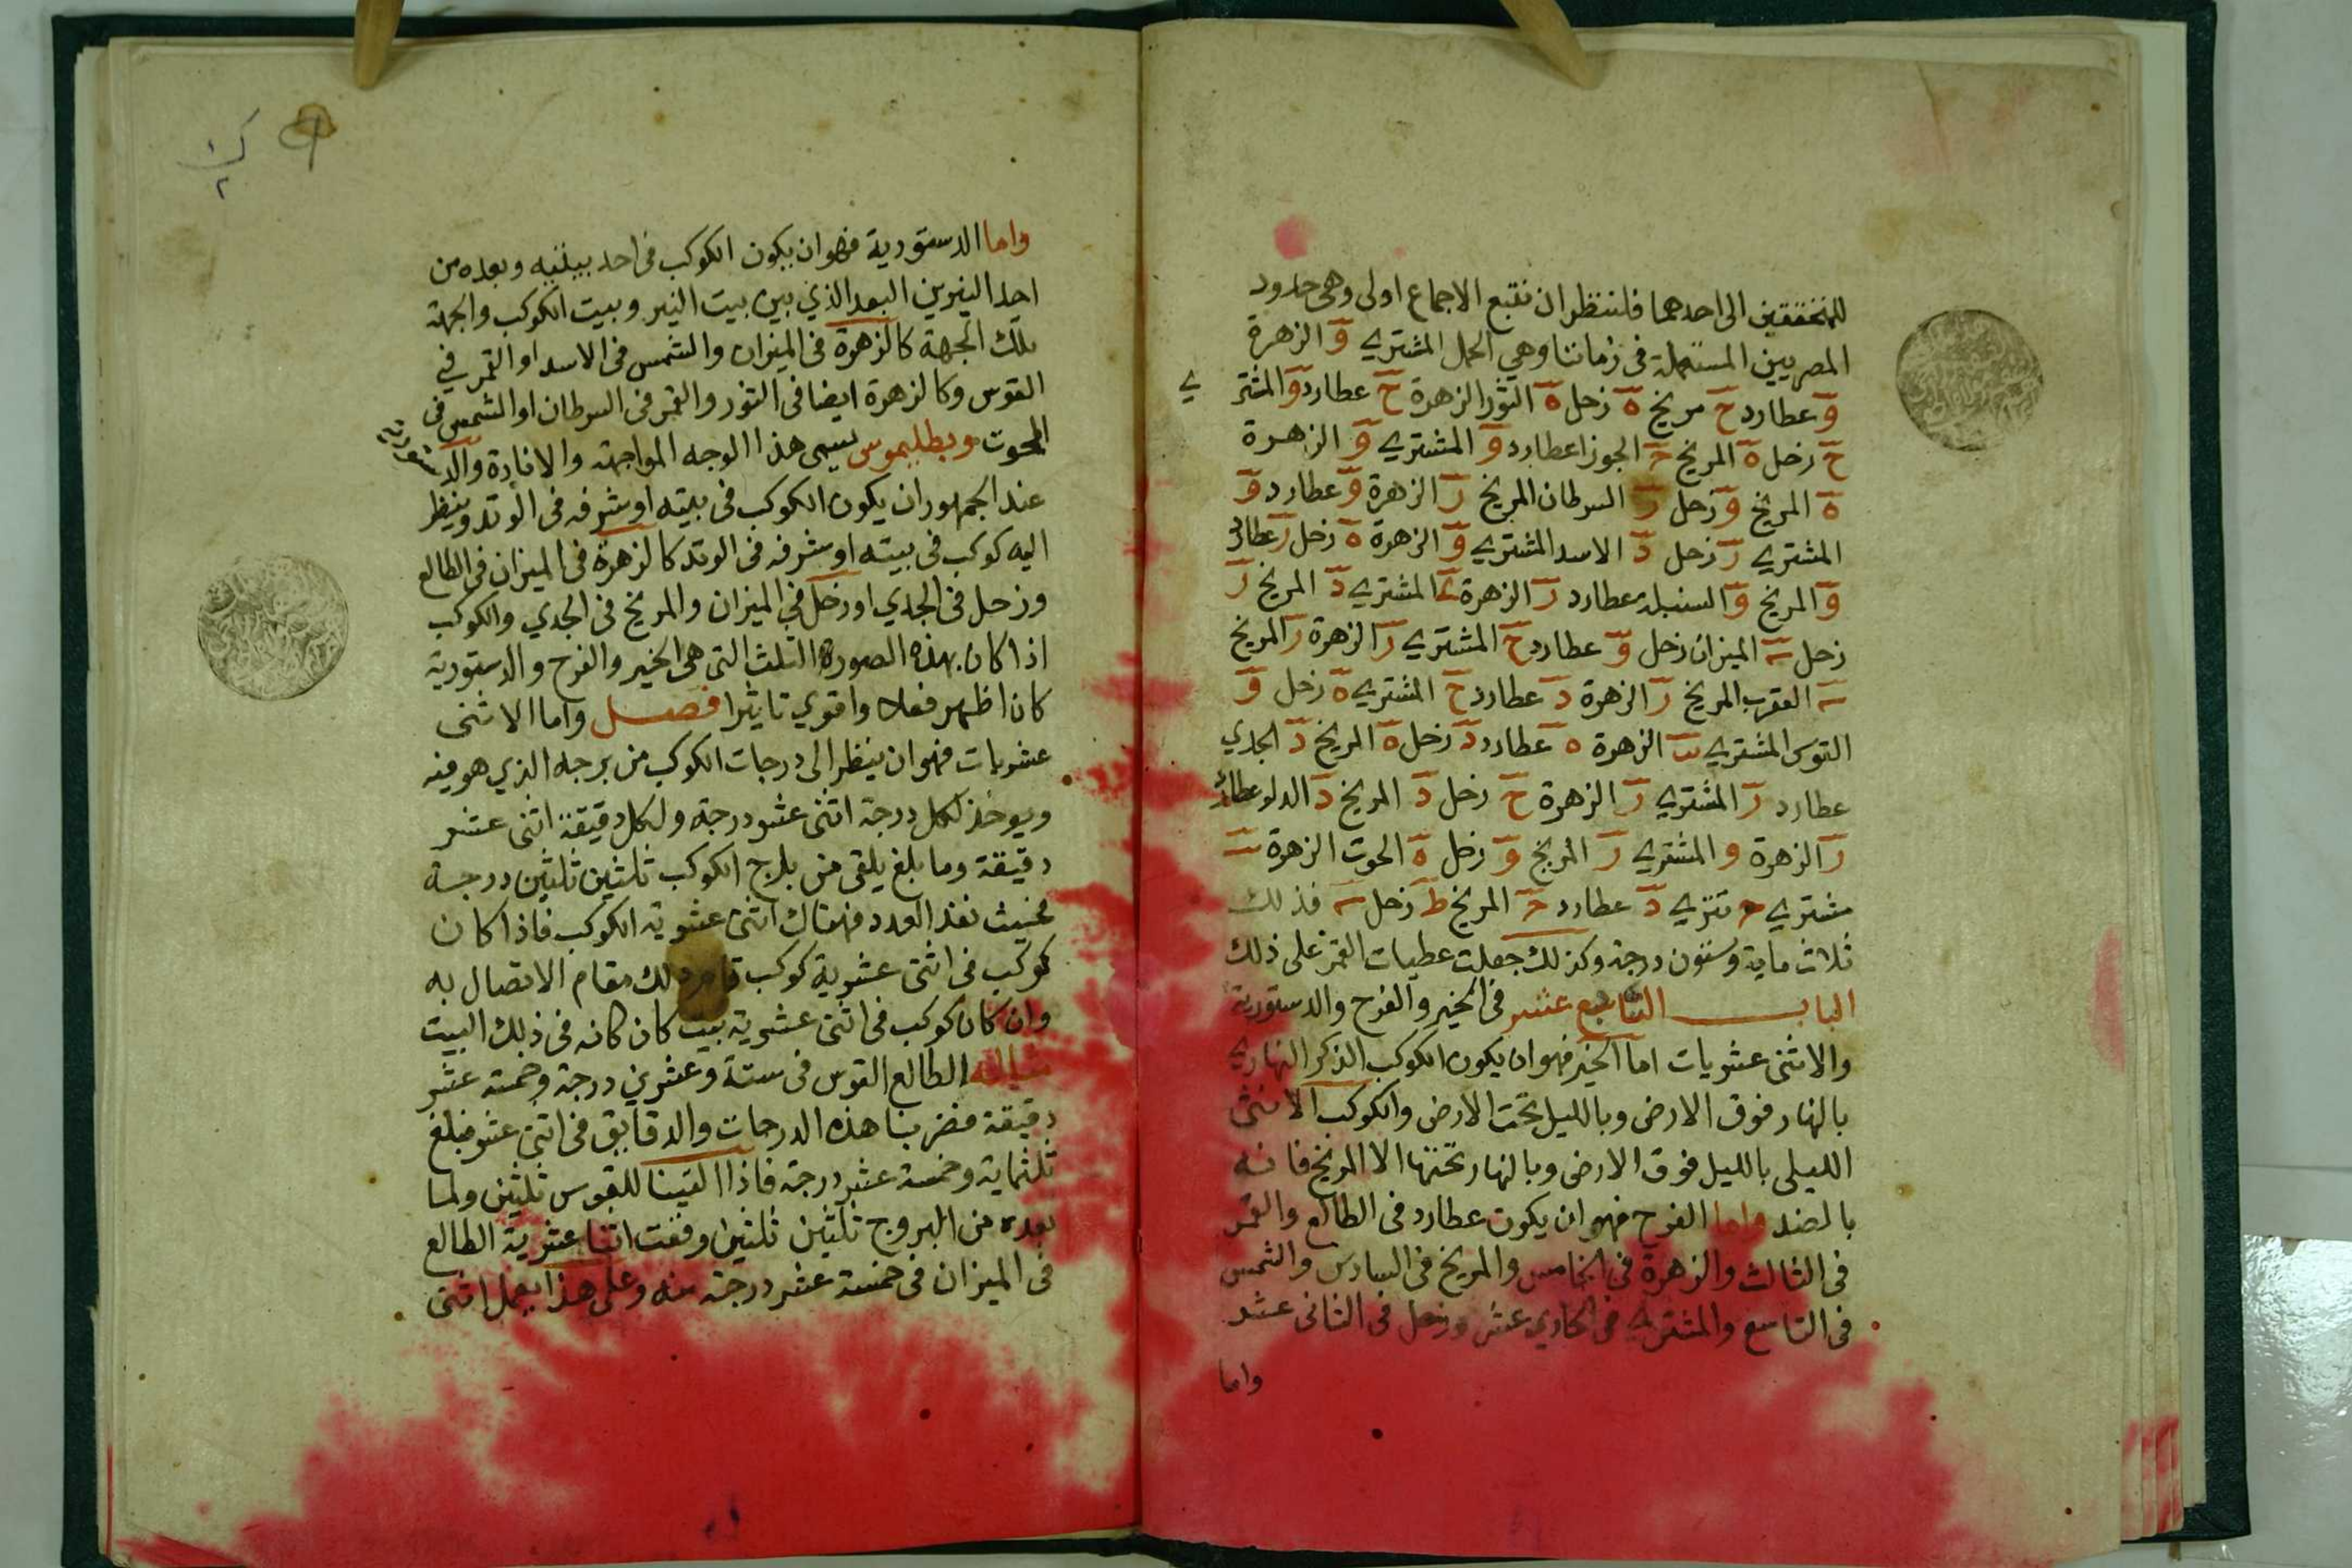 للمتحققين الى احدهما فلننظر ان نتبع الاجماع اولى وهى حدود
المصريين المستعملة فى زماننا وهي الحمل المشتري وَ الزهرة
وَ عطارد حَ مريخ هَ زحل هَ الثور الزهرة حَ عطارد وَ المشتر
ي
حَ زحل هَ المريخ حَ الجوزا عطارد وَ المشتري وَ الزهرة
هَ المريخ وَ زحل رَ السرطان المريخ رَ الزهرة وَ عطارد وَ
المشتري رَ زحل دَ الاسد المشتري وَ الزهرة هَ زحل رَ عطارد
وَ المريخ وَ السنبلة عطارد رَ الزهرة المشتري دَ المريخ رَ
زحل الميزان زحل وَ عطارد حَ المشتري رَ الزهرة رَ المريخ
العقرب المريخ رَ الزهرة دَ عطارد حَ المشتري هَ زحل وَ
القوس المشتري الزهرة ه عطارد دَ زحل هَ المريخ دَ الجدي
عطارد رَ المشتري رَ الزهرة حَ زحل دَ المريخ دَ الدلو عطارد
رَ الزهرة و المشتري رَ المريخ وَ زحل هَ الحوت الزهرة
مشتري دَ عطارد حَ المريخ طَ زحل فذلك
ثلاث ماية وستون درجة وكذلك جعلت عطيات القمر على ذلك
الباب التاسع عشر فى الخير والفرح والدستورية
والاثنى عشريات اما الخير فهو ان يكون الكوكب الذكر النهاري
بالنهار فوق الارض وبالليل تحت الارض والكوكب الانثى
الليلى بالليل فوق الارض وبالنهار تحتها الا المريخ فانه
بالضد واما الفرح فهو ان يكون عطارد فى الطالع والقمر
فى الثالث والزهرة فى الخامس والمريخ فى السادس والشمس
فى التاسع والمشتري فى الحادي عشر وزحل فى الثانى عشر
واما
واما الدستورية فهو ان يكون الكوكب فى احد بيتيه وبعده من
احد النيرين البعد الذي بين بيت النير وبيت الكوكب والجهة
تلك الجهة كالزهرة فى الميزان والشمس فى الاسد او القمر في
القوس وكالزهرة ايضا فى الثور والقمر فى السرطان او الشمس فى
الحوت وبطليموس يسمى هذا الوجه المواجهة والافادة والد
ستورية
عند الجمهور ان يكون الكوكب فى بيته او شرفه فى الوتد وينظر
اليه كوكب فى بيته او شرفه فى الوتد كالزهرة فى الميزان فى الطالع
وزحل فى الجدي او زحل فى الميزان والمريخ فى الجدي والكوكب
اذا كان بهذه الصورة الثلث التى هى الخير والفرح والدستورية
كان اظهر فعلا واقوي تاثيرا فصل واما الاثنى
عشريات فهو ان ينظر الى درجات الكوكب من برجه الذي هو فيه
ويوخذ لكل درجة اثنى عشر درجة ولكل دقيقة اثنى عشر
دقيقة وما بلغ يلقى من برج الكوكب ثلثين ثلثين درجة
فحيث نفد العدد فهناك اثنى عشرية الكوكب فاذا كان
كوكب فى اثنى عشرية كوكب قام ذلك مقام الاتصال به
وان كان كوكب فى اثنى عشرية بيت كان كانه فى ذلك البيت
مثاله الطالع القوس فى ستة وعشرين درجة وخمسة عشر
دقيقة فضربنا هذه الدرجات والدقايق فى اثنى عشر فبلغ
ثلثماية وخمسة عشر درجة فاذا القينا للقوس ثلثين ولما
بعده من البروج ثلثين ثلثين وقفت اثنا عشرية الطالع
فى الميزان فى خمسة عشر درجة منه وعلى هذا يعمل اثنى